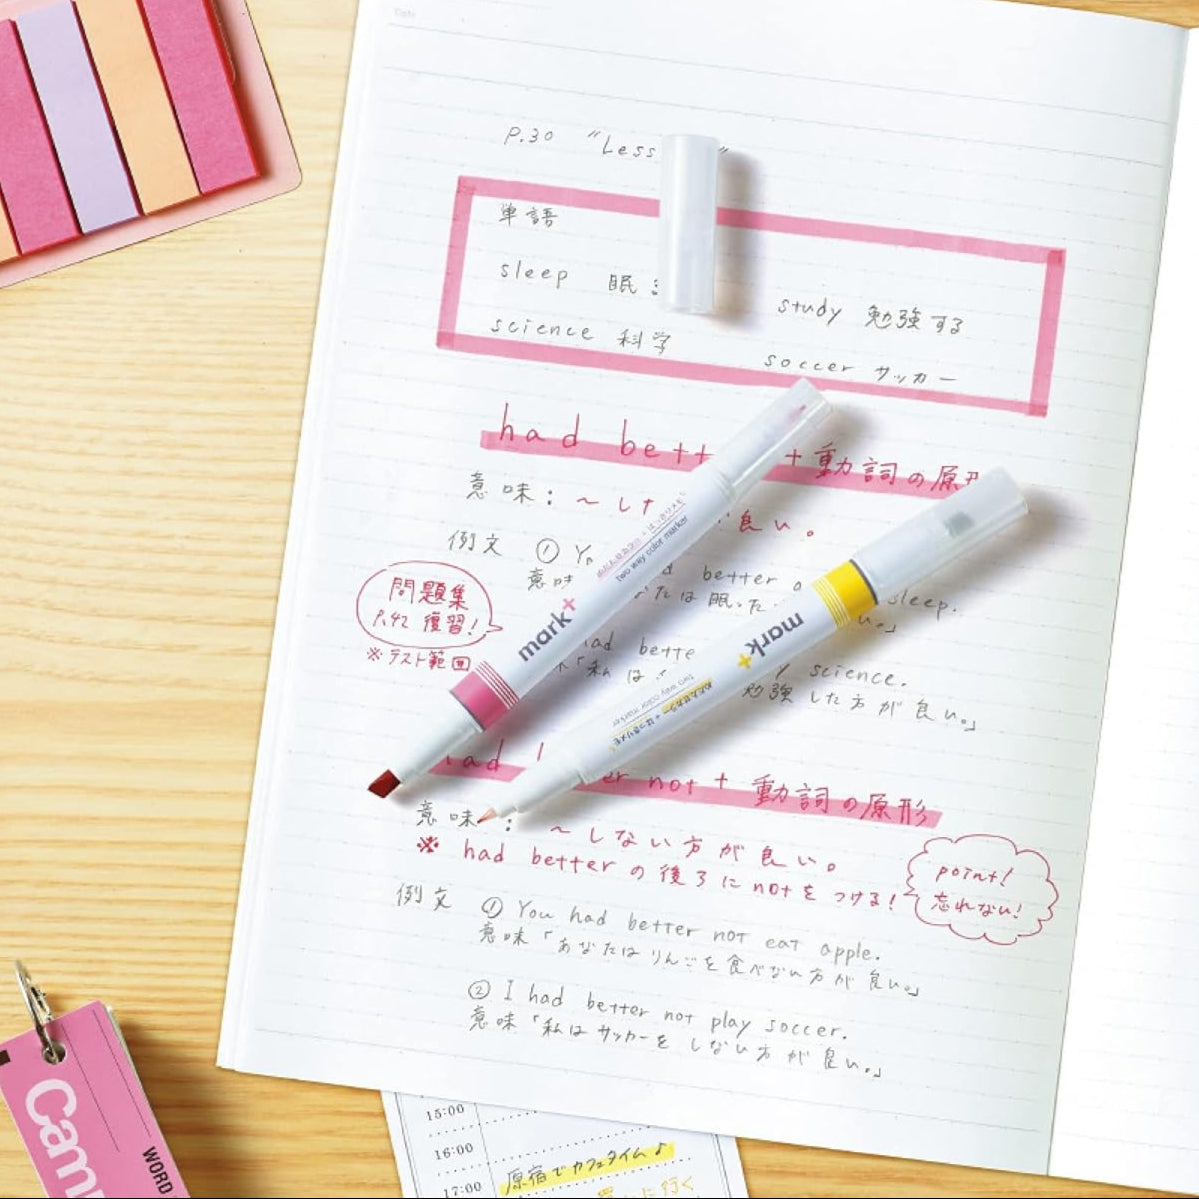 Date
P.30 "Less
単語
sleep 眠
study 勉強する
science 科学
soccer サッカー
had bett + 動詞の原形
意味：〜した 良い。
例文 ① Yo
better sleep.
意味 たは眠った い。」
問題集
P.42 復習!
※テスト範囲
had bette science.
「私は 勉強した方が良い。」
had er not + 動詞の原形
意味： 〜しない方が良い。
※ had better の後ろにnotをつける!
point!
忘れない!
例文 ① You had better not eat apple.
意味「あなたはりんごを食べない方が良い。」
② I had better not play soccer.
意味「私はサッカーをしない方が良い。」
mark+
two way color marker
mark+
two way color marker
15:00
16:00
原宿でカフェタイム♪
17:00
に行く
Cam
WORD